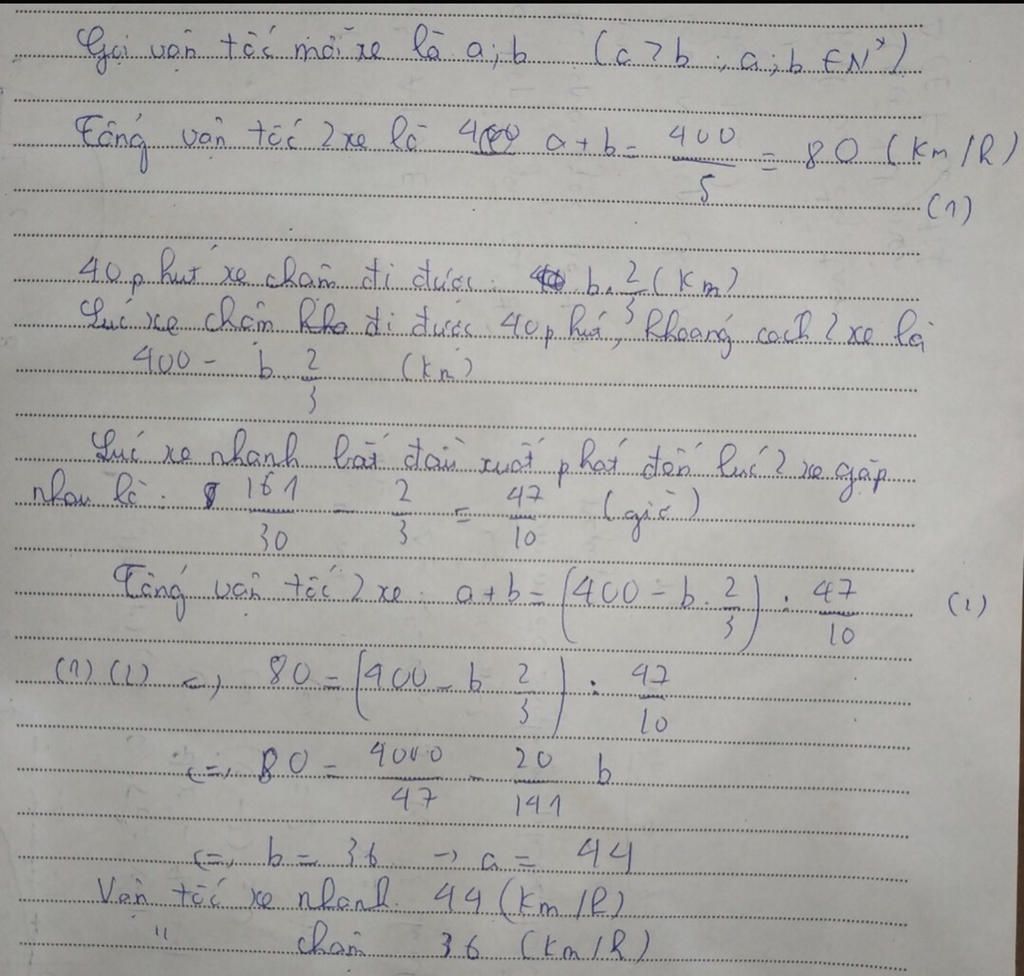 Gọi vận tốc mỗi xe là a; b (a > b ; a; b ∈ N*)
Tổng vận tốc 2 xe là a + b = 400/5 = 80 (Km/h)
(1)
40 phút xe chậm đi được: b. 2/3 (Km)
Lúc xe chậm khi đi được 40 phút, khoảng cách 2 xe là
400 - b 2/3 (Km)
Lúc xe nhanh bắt đầu xuất phát đến lúc 2 xe gặp
nhau là: 161/30 - 2/3 = 47/10 (giờ)
Tổng vận tốc 2 xe: a + b = (400 - b. 2/3) : 47/10 (2)
(1) (2) <=> 80 = (400 - b 2/3) : 47/10
<=> 80 = 4000/47 - 20/141 b
<=> b = 36 -> a = 44
Vận tốc xe nhanh 44 (Km/h)
" chậm 36 (Km/h)